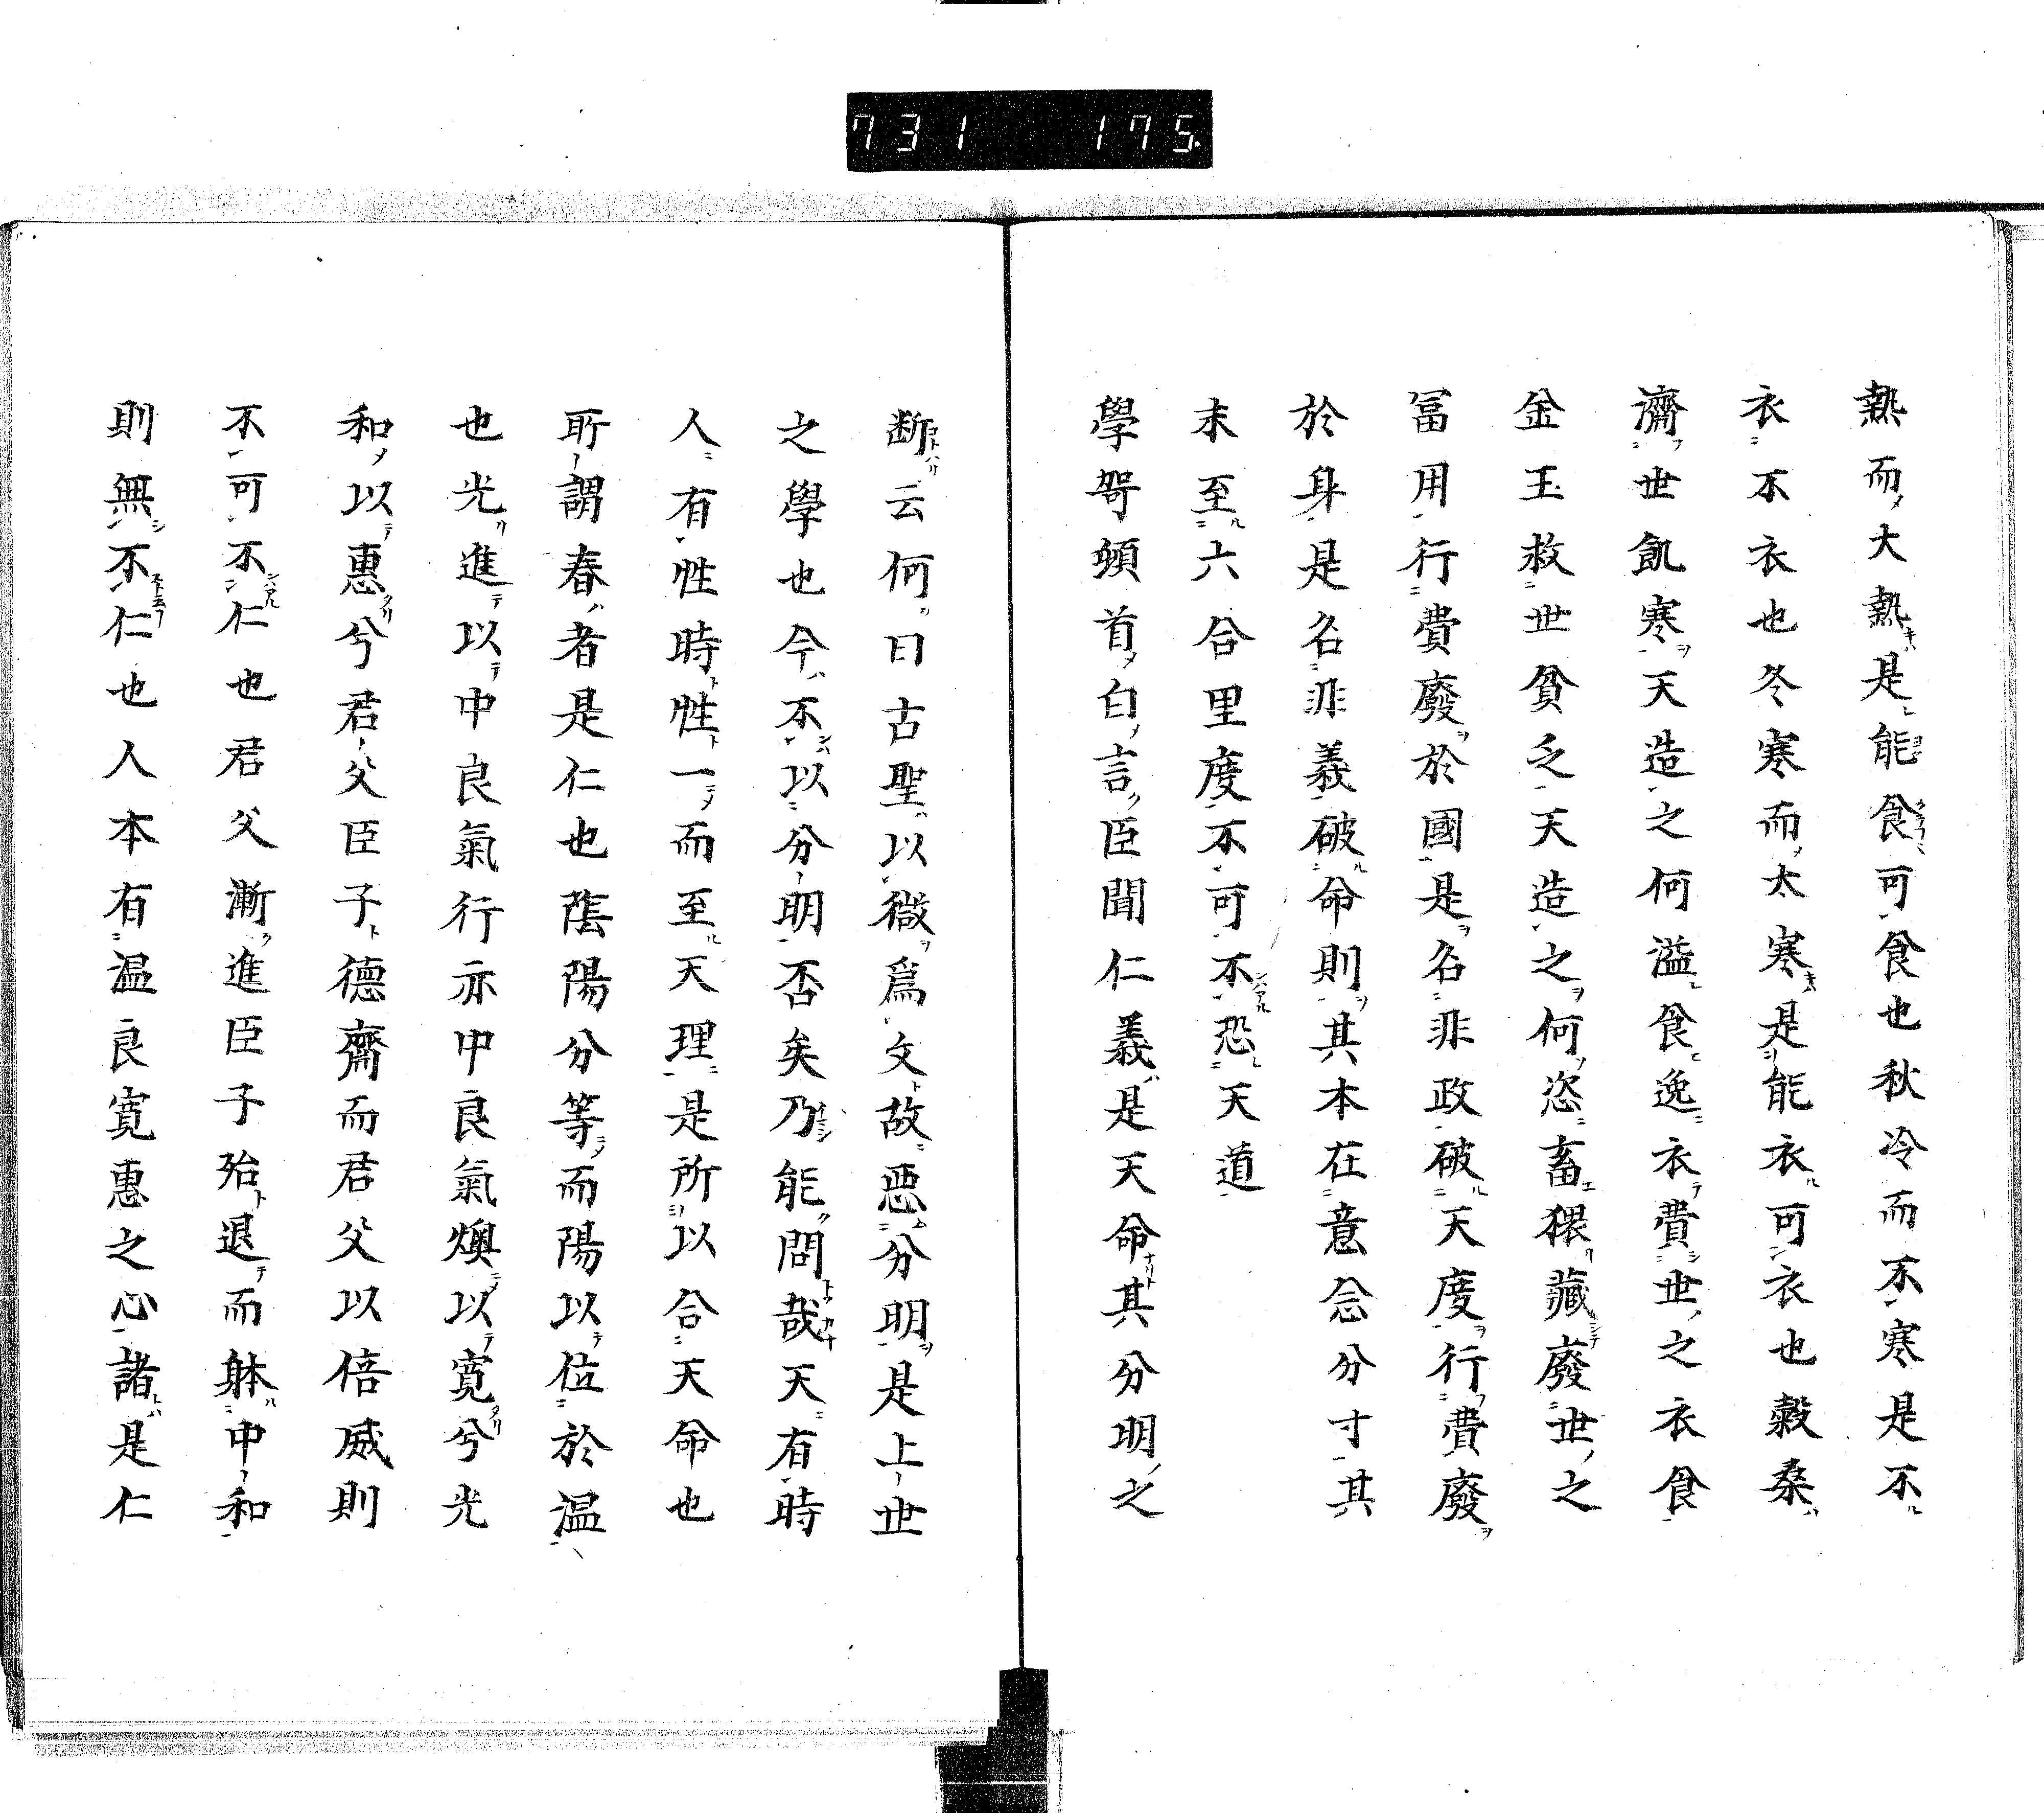 731 175
熱而大熱是能食可食也秋冷而不寒是不
衣不衣也冬寒而太寒是能衣可衣也穀桑
濟世飢寒天造之何溢食逸衣費世之衣食
金玉救世貧乏天造之何恣畜猥藏廢世之
冨用行費廢於國是名非政破天度行費廢
於身是名非義破命則其本在意念分寸其
末至六合里度不可不恐天道
學哿頓首白言臣聞仁義是天命其分明之
断云何曰古聖以微爲文故惡分明是上世
之學也今不以分明否矣乃能問哉天有時
人有性時性一而至天理是所以合天命也
所謂春者是仁也陰陽分等而陽以位於温
也光進以中良氣行亦中良氣燠以寛兮光
和以惠兮君父臣子德齊而君父以倍威則
不可不仁也君父漸進臣子殆退而躰中和
則無不仁也人本有温良寛惠之心諸是仁